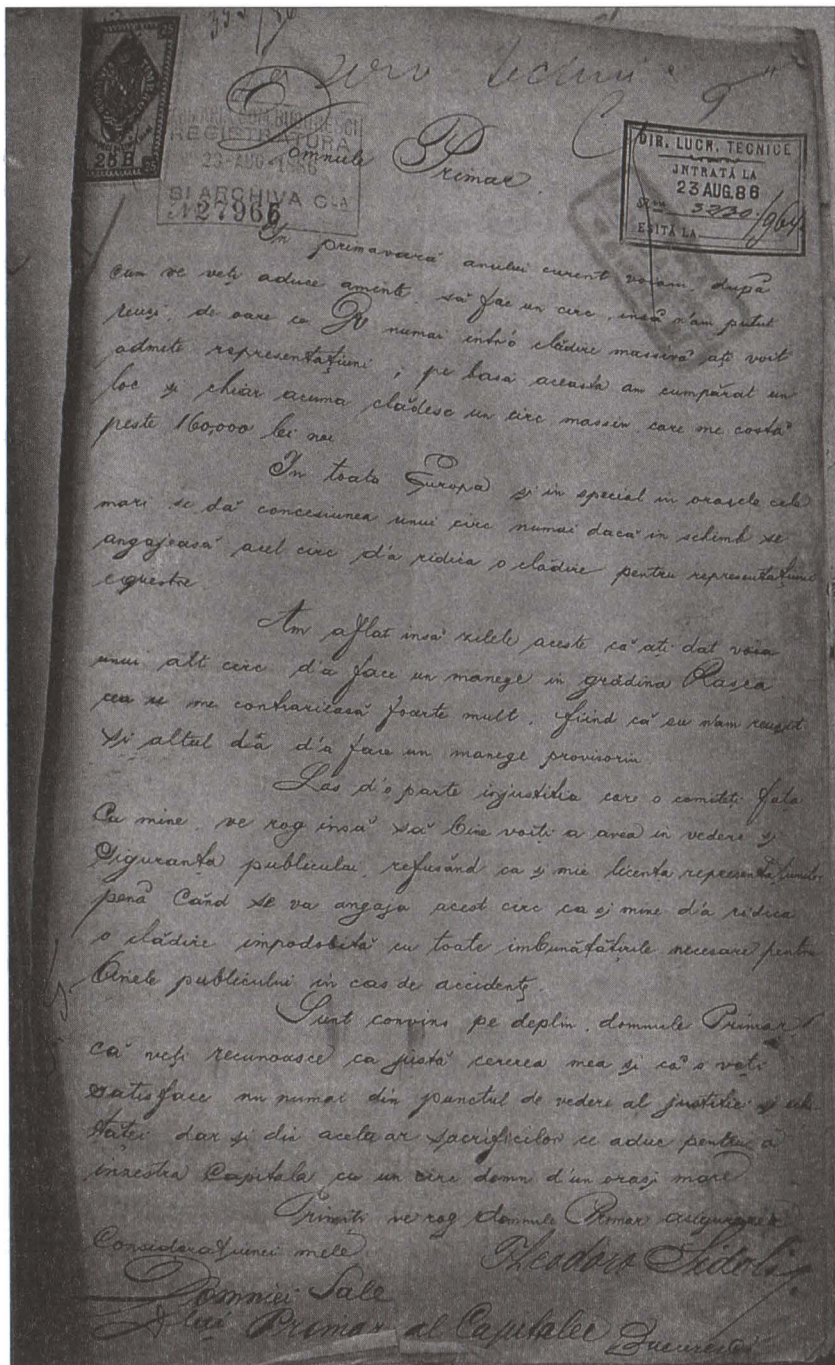 25 B
PRIMARIA COM. BUCURESCI
REGISTRATURA
23-AUG-1886
SI ARCHIVA G-LA
No 27966
DIR. LUCR. TECNICE
INTRATĂ LA
23 AUG. 86
3230/964
ESITĂ LA
Domnule Primar.
In primavară anului curent voiam, după
cum ve veți aduce aminte, să fac un circ, însă n'am putut
reuși, de oare ce Dv numai intr'o clădire massivă ați voit
admite representațiuni; pe basa aceasta am cumpărat un
loc și chiar acuma clădesc un circ massiv, care me costă
peste 160,000 lei noi
In toata Europa și in special in orașele cele
mari se dă concesiunea unui circ numai dacă in schimb se
angajeasă acel circ d'a ridica o clădire pentru representațiuni
equestre
Am aflat insă zilele aceste că ați dat voia
unui alt circ d'a face un manege in grădina Rașca
cea ce me contrariiasă foarte mult, fiind că eu n'am reușit
și altul dă d'a face un manege provisoriu.
Las d'o parte injustitia care o comiteți fata
Cu mine, ve rog insă să bine voiți a avea in vedere și
Siguranța publicului, refusând ca și mie licenta representațiunilor
penă Când se va angaja acest circ ca și mine d'a ridica
o clădire impodobită cu toate imbunătățirile necesare pentru
Binele publicului in cas de accidente.
Sunt convins pe deplin, domnule Primar,
că veți recunoasce ca justă cererea mea și că o veți
satisface nu numai din punctul de vedere al justitie și
dar și din acela ar sacrificilor ce aduc pentru a
inzestra Capitala cu un circ demn d'un oraș mare
Primiți ve rog domnule Primar asigurarea
Considerațiunei mele
Theodoro Sidoli
Domniei Sale
D lui Primar al Capitalei București